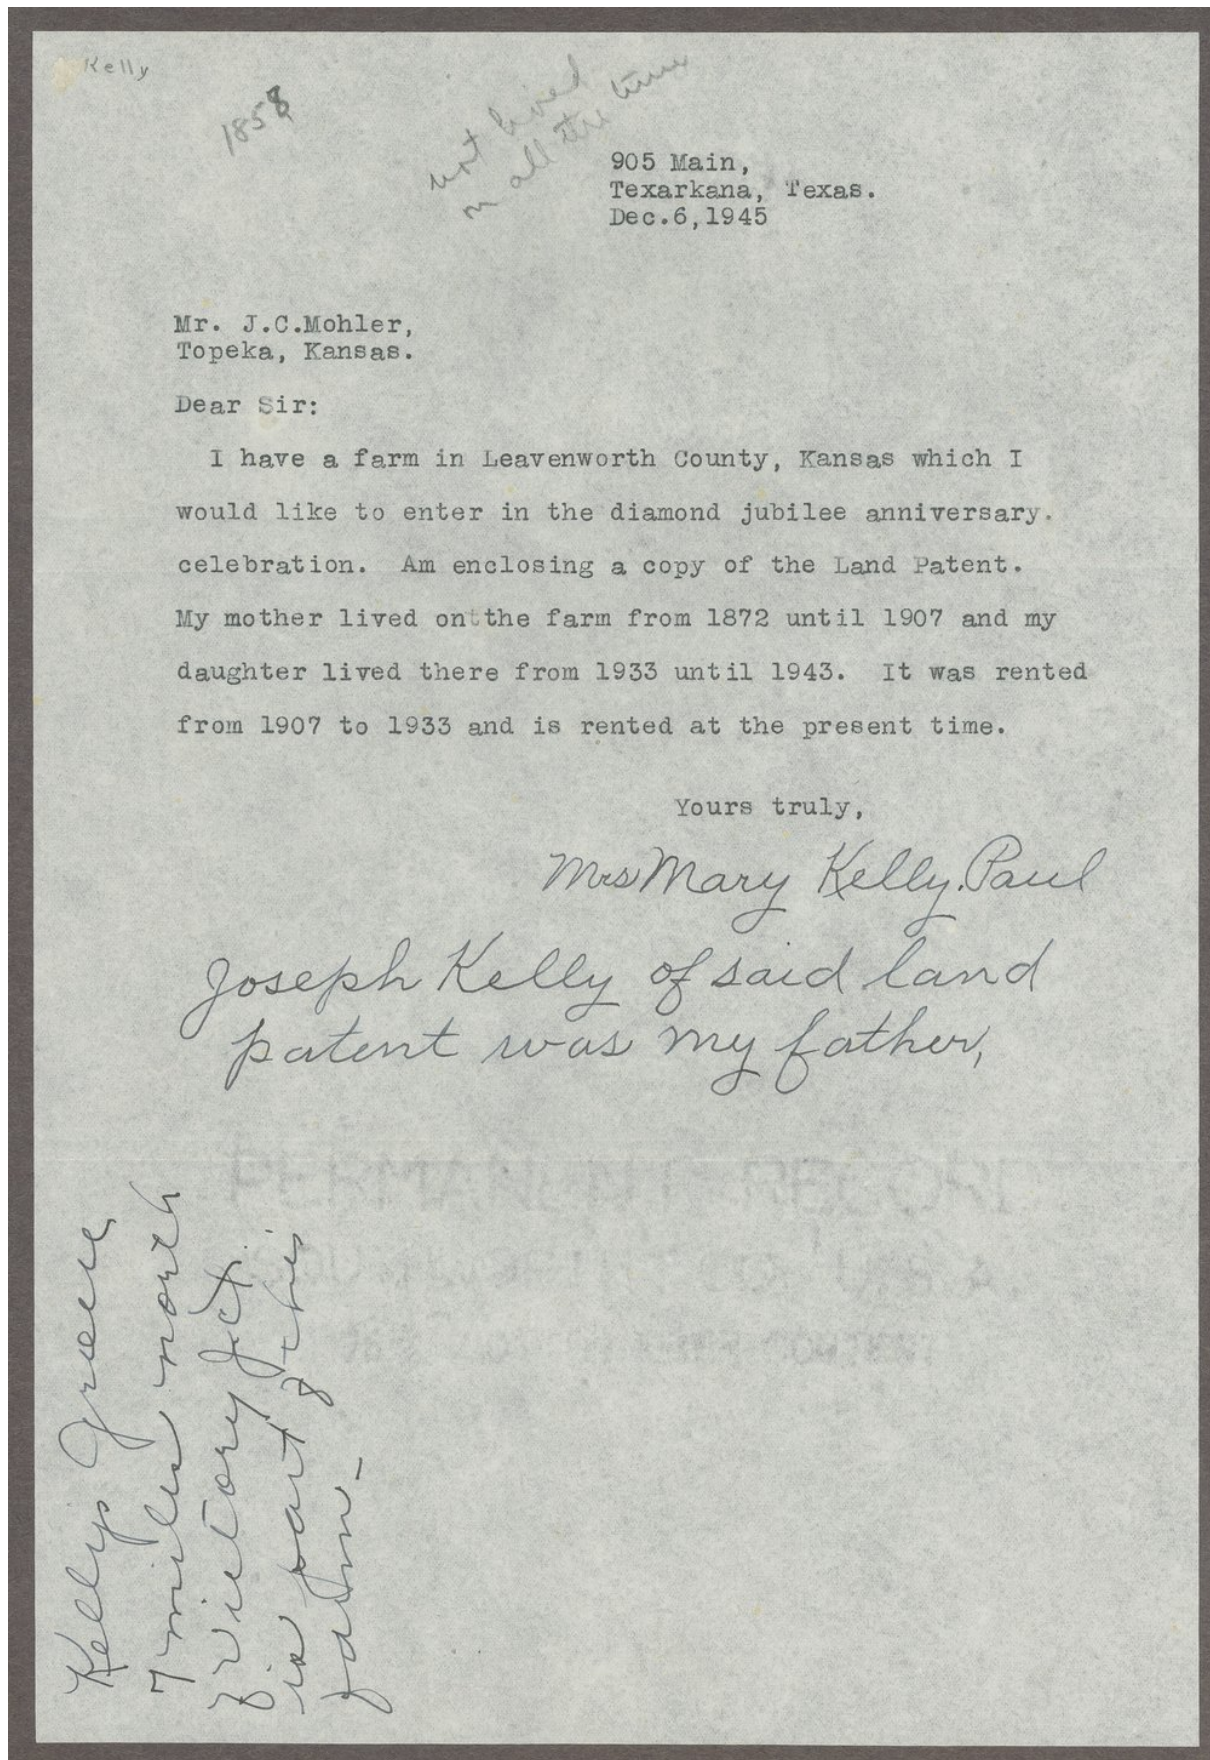 Kelly
1858
not lived
on all the time
905 Main,
Texarkana, Texas.
Dec.6,1945
Mr. J.C.Mohler,
Topeka, Kansas.
Dear Sir:
I have a farm in Leavenworth County, Kansas which I
would like to enter in the diamond jubilee anniversary.
celebration. Am enclosing a copy of the Land Patent.
My mother lived on the farm from 1872 until 1907 and my
daughter lived there from 1933 until 1943. It was rented
from 1907 to 1933 and is rented at the present time.
Yours truly,
Mrs Mary Kelly.Paul
Joseph Kelly of said land
patent was my father,
Kellys Grove
7 miles north
of Victory Jct.
is part of this
farm-